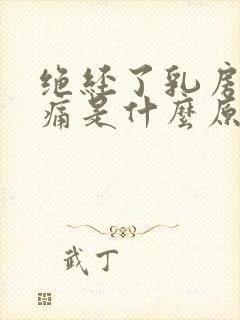 绝经了乳房
痛是什麼原
武丁